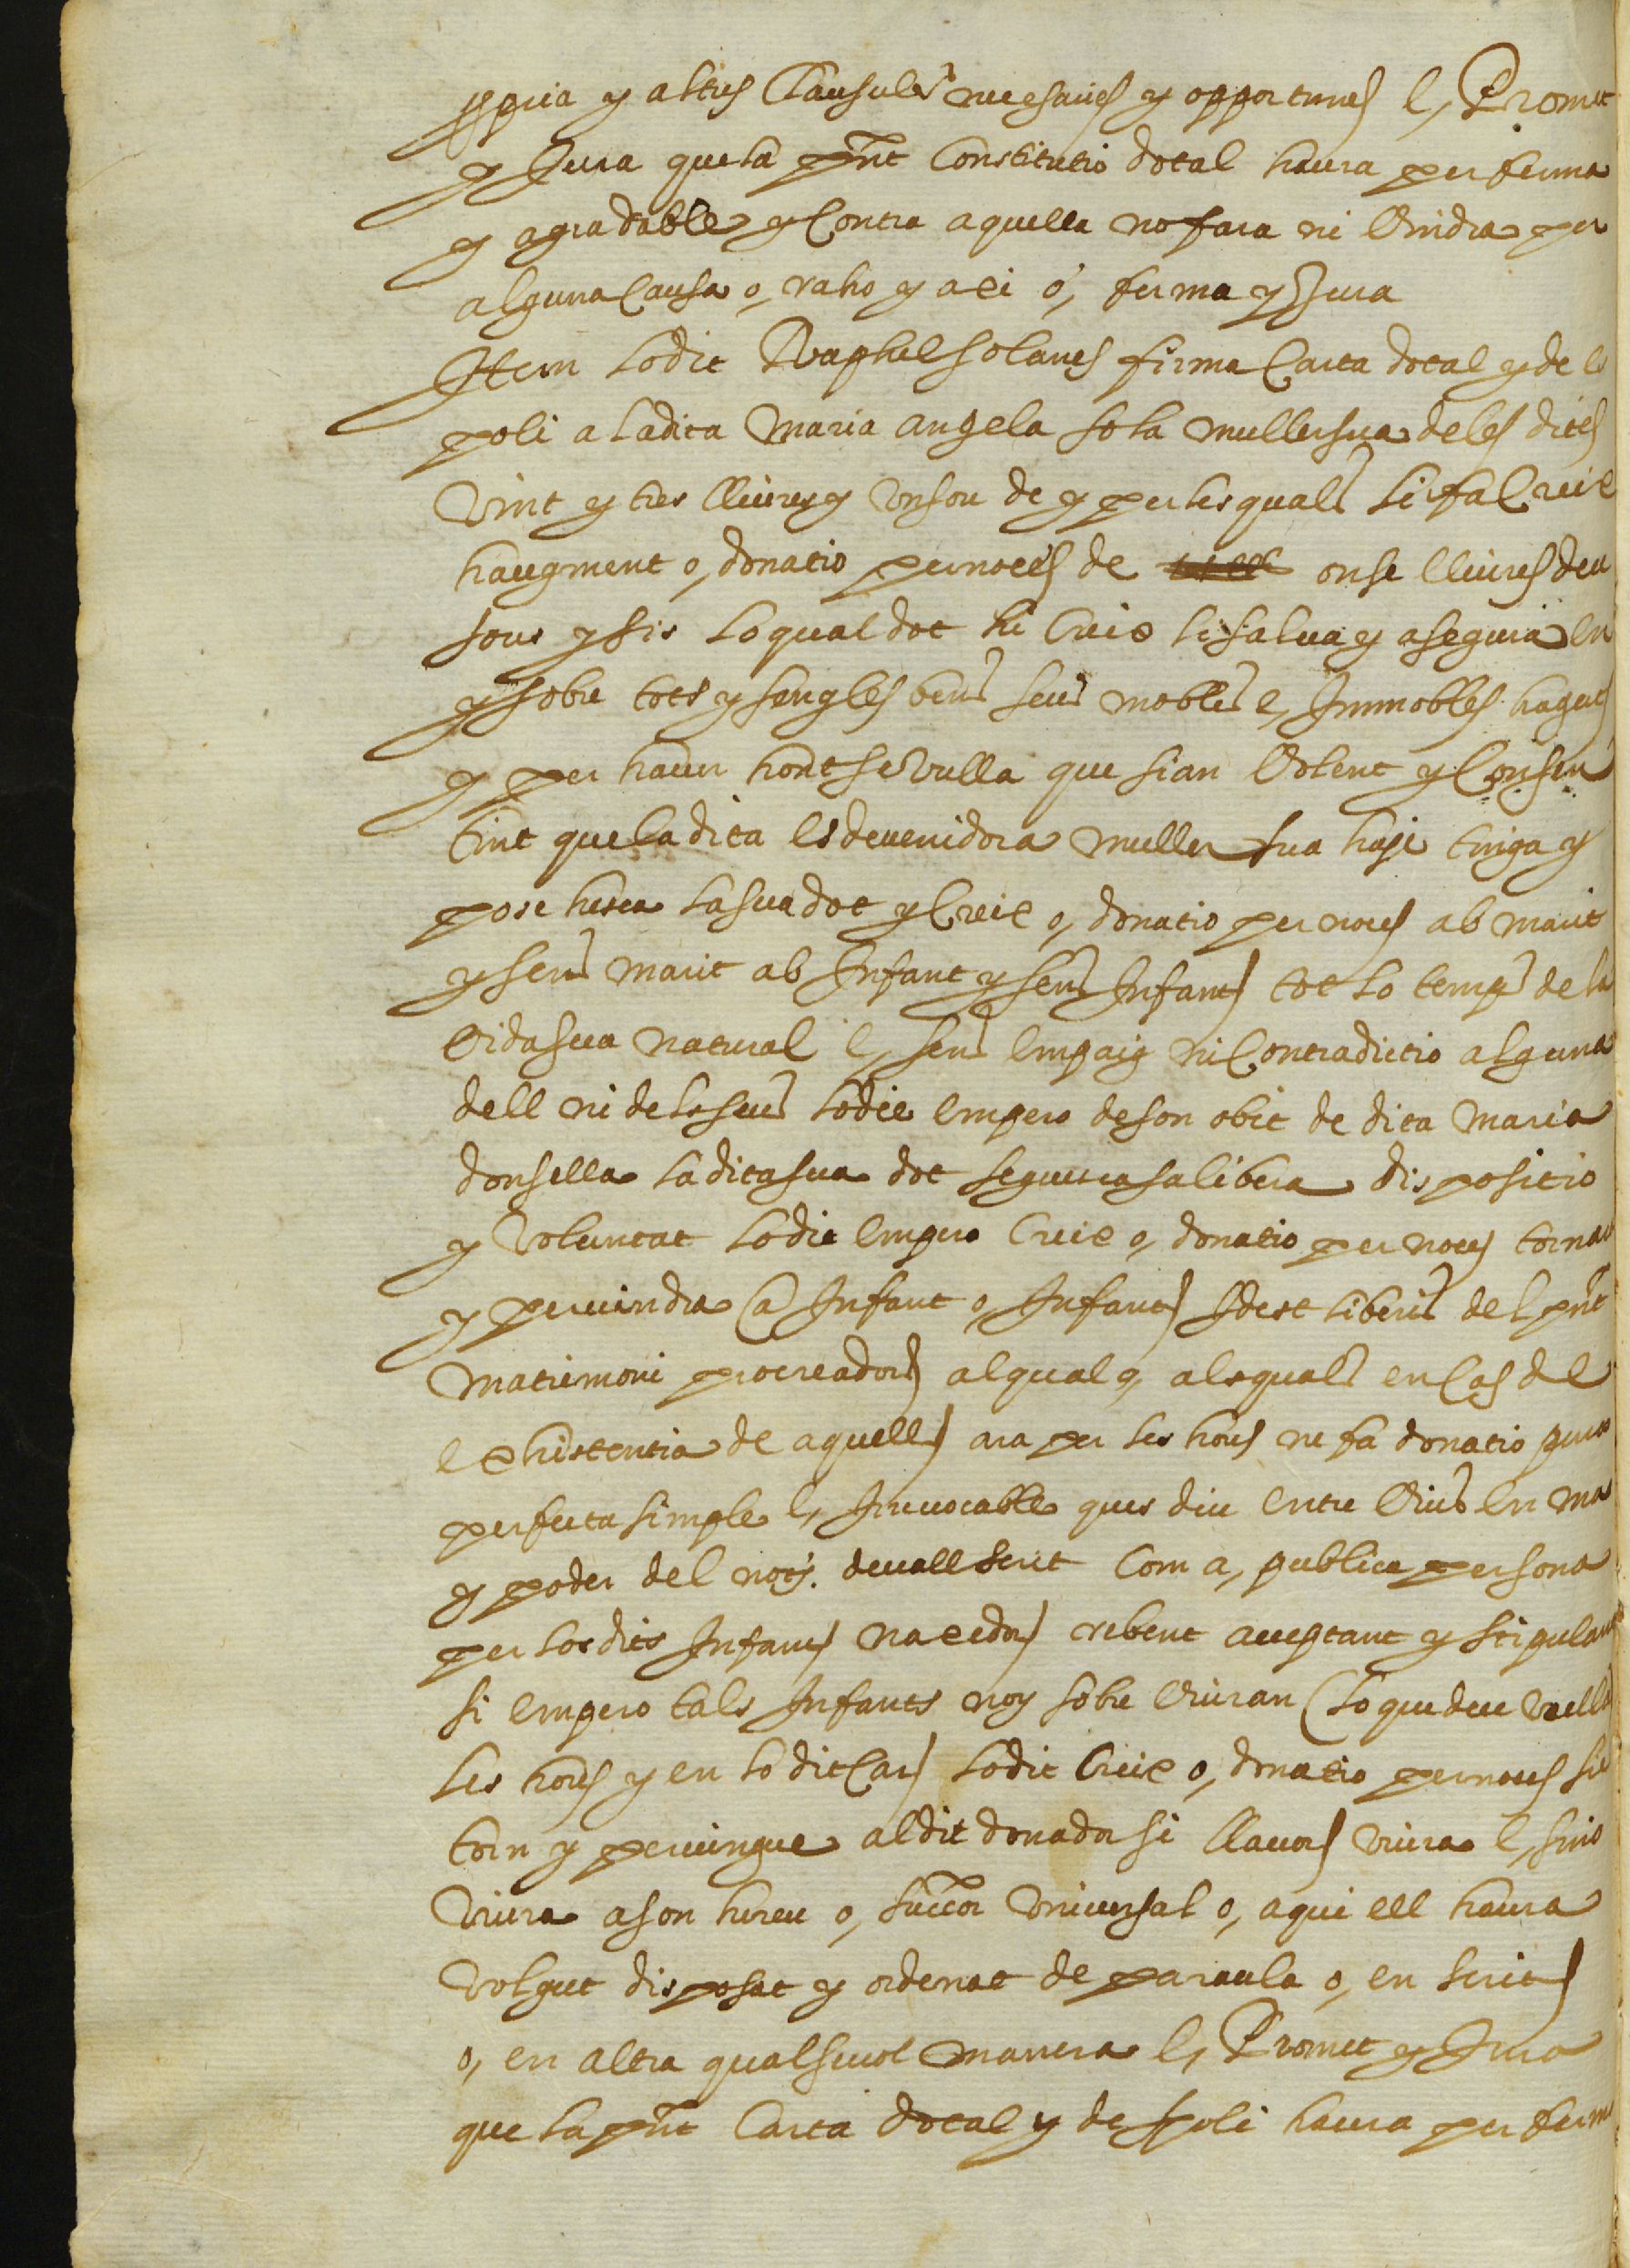 ppria y altres Clausules necesaries y opportunes E, Promet
y Jura que la pñt Constitutio dotal haura per ferma
y agradable y Contra aquella no fara ni Vindra per
alguna Causa o, raho y axi ó, ferma y Jura
Item lo dit Raphel solanes firma Carta dotal y de es
poli a la dita Maria angela sola muller sua de les dites
Vint y tres lliures y Vn sou de y per les quals li fa Creix
haugment o, donatio per noces de onse lliures deu
sous y sis lo qual dot hi Creix li salua y asegura en
y sobre tots y sengles bens seus mobles e, Immobles haguts
y per hauer hont se Vulla que sian Volent y Consen
tint que la dita esdeuenidora muller sua haje tinga y
posehesca la sua dot y Creix o, donatio per noces ab marit
y sens marit ab Infant y sens Infants tot lo temps de la
Vida sua natural E, sens empaig ni Contradictio alguna
dell ni dels seus lo die empero de son obit de dita Maria
donsella la dita sua dot seguesca sa libera dispositio
y Voluntat lo dit empero Creix o, donatio per noces tornara
y peruindra a Infant o, Infants Idest liberis del pñt
Matrimoni procreadors al qual o, als quals en Cas de
existentia de aquells ara per les hores ne fa donatio pura
perfecta simple E, Irreuocable ques diu entre Vius en ma
y poder del noẗ. deuall scrit Com a, publica persona
per los dits Infants naxedors rebent acceptant y stipulant
si empero tals Infants noy sobre Viuran (lo que deu Vulla)
les hores y en lo dit Cas lo dit Creix o, donatio per noces sie
torn y peruingue al dit donador si llauors Viura E, si no
Viura a son hereu o, succor Vniuersal o, a qui ell haura
Volgut disposat y ordenat de paraula o, en scrits
o, en altra qualseuol manera E, Promet y Jura
que la pñt Carta dotal y de spoli haura per ferma